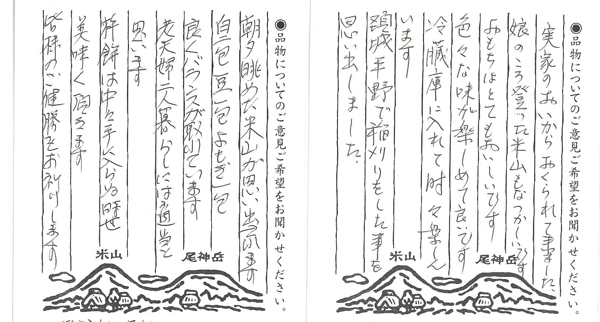 ●品物についてのご意見ご希望をお聞かせください。
実家のめいからおくられて来ました。
娘のころ登った米山もなつかしいです
よもちはとてもおいしいです
色々な味が楽しめて良いです
冷蔵庫に入れて時々楽しん
います
頚城平野で稲刈りもした事を
思い出しました。
米山
尾神岳
●品物についてのご意見ご希望をお聞かせください。
朝夕眺めた米山が思い出されます
白一包 豆一包 よもぎ一包
良くバランスが取れています
老夫婦二人暮らしには適当と
思います
杵餅は中々手に入らぬ時世
美味く頂きます
皆様のご健勝をお祈りします
米山
尾神岳